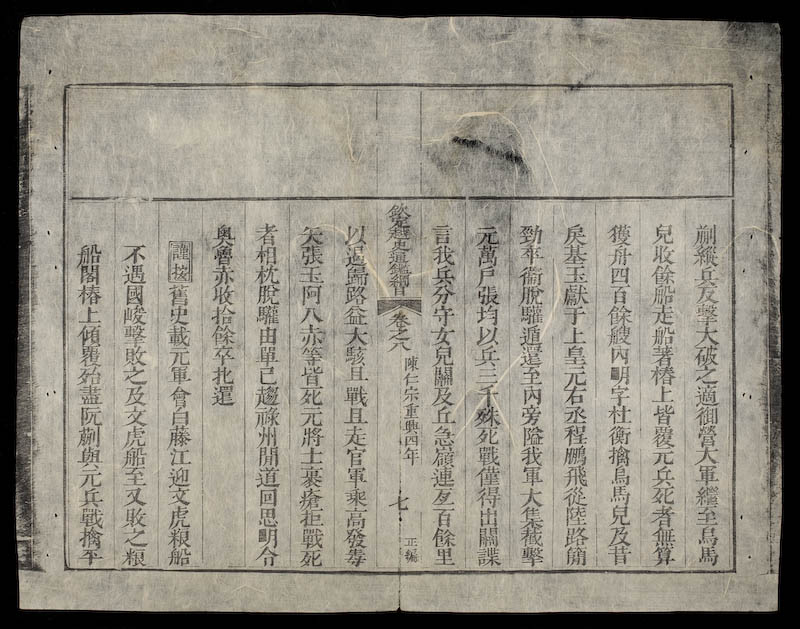 蒯縱兵反擊大破之適御營大軍繼至烏馬
兒收餘船走船著樁上皆覆元兵死者無算
獲舟四百餘艘內明字杜衡擒烏馬兒及昔
戾基玉獻于上皇元右丞程鵬飛從陸路簡
勁卒衞脫驩遁還至內旁隘我軍大集截擊
元萬戶張均以兵三千殊死戰僅得出關諜
言我兵分守女兒關及丘急嶺連亙百餘里
欽定越史通鑑綱目 卷之八 陳仁宗重興四年 七 正編
以遏歸路益大駭且戰且走官軍乘高發毒
矢張玉阿八赤等皆死元將士裹瘡拒戰死
者相枕脫驩由單己趨祿州閒道回思明令
奧魯赤收拾餘卒北還
謹按舊史載元軍會白藤江迎文虎粮船
不遇國峻擊敗之及文虎船至又敗之粮
船閣樁上傾覆殆盡阮蒯與元兵戰擒平